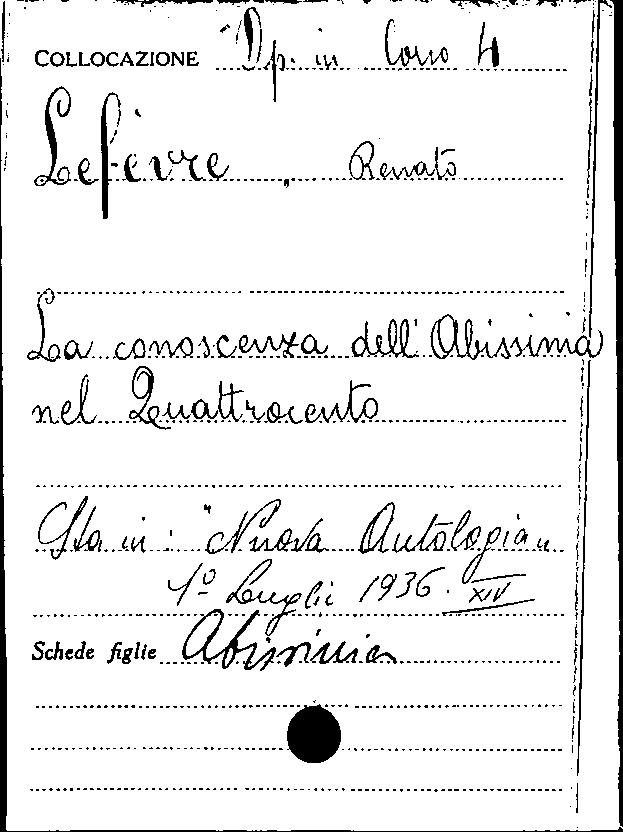 COLLOCAZIONE Op. in Corso 4
Lefèvre, Renato
La conoscenza dell'Abissinia
nel Quattrocento
Sta in: "Nuova Antologia"
1º Luglio 1936. XIV
Schede figlie Abissinia